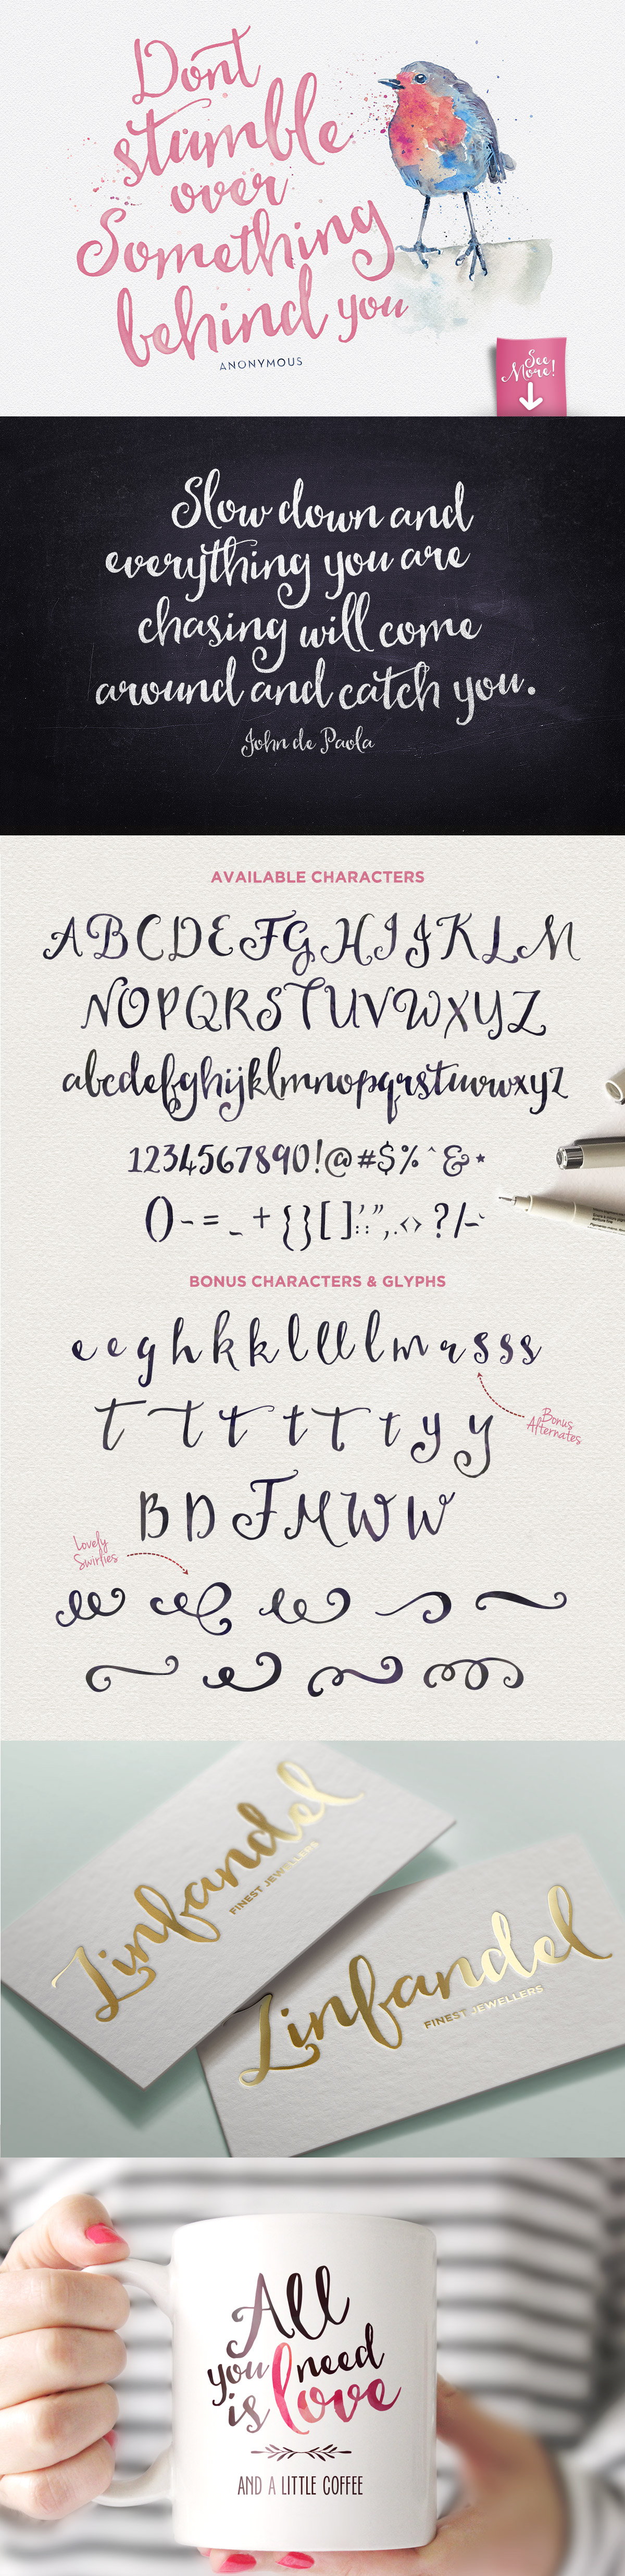 Dont
stumble
over
Something
behind you
ANONYMOUS
See
More!
Slow down and
everything you are
chasing will come
around and catch you.
John de Paola
AVAILABLE CHARACTERS
ABCDEFGHIJKLM
NOPQRSTUVWXYZ
abcdefghijklmnopqrstuvwxyz
1234567890!@#$%^&*
()-=_+{}[]:;'",.<>?/~`
BONUS CHARACTERS & GLYPHS
e e g h k k l ll l m r s s s
t t t t t t y y
Bonus
Alternates
B D F M W W
Lovely
Swirlies
Zinfandel
FINEST JEWELLERS
Zinfandel
FINEST JEWELLERS
All
you need
is love
AND A LITTLE COFFEE